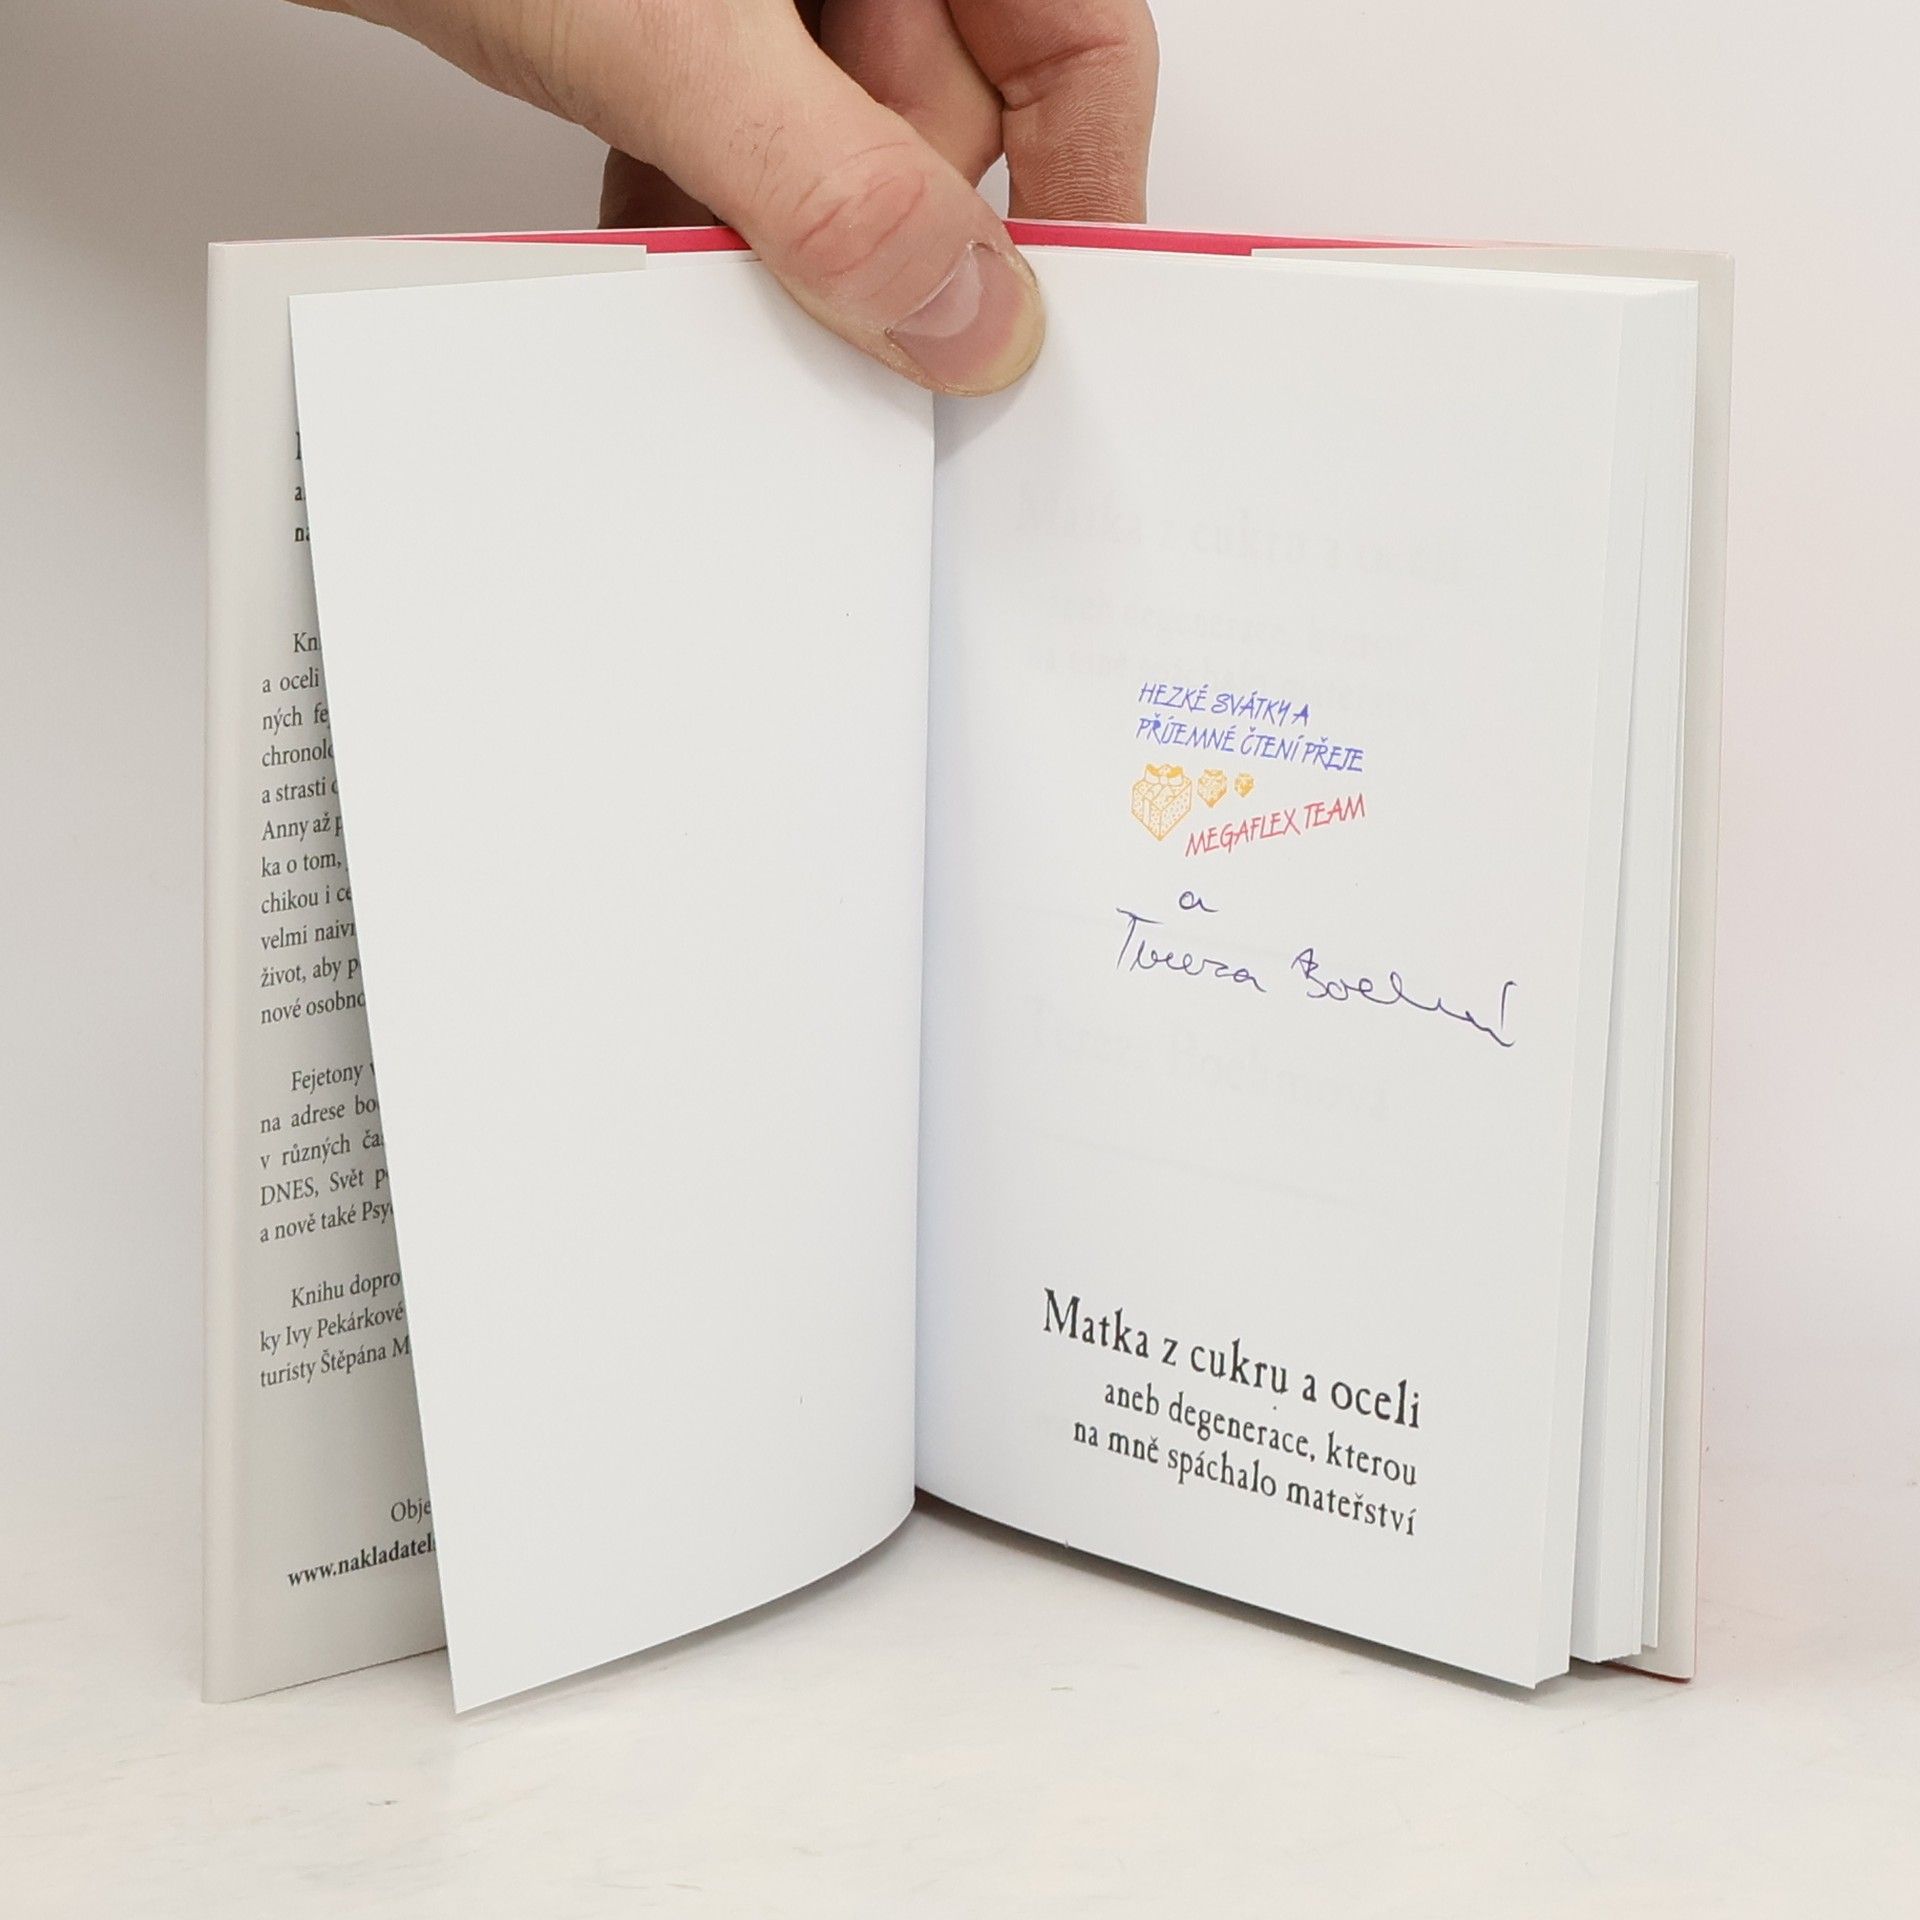 a
na
Kn
a oceli
ných fe
chronolo
a strasti
Anny až p
ka o tom,
chikou i ce
velmi naivn
život, aby p
nové osobno
Fejetony v
na adrese bo
v různých ča
DNES, Svět p
a nově také Psy
Knihu dopro
ky Ivy Pekárkové
turisty Štěpána M
Obje
www.nakladatels
HEZKÉ SVÁTKY A
PŘÍJEMNÉ ČTENÍ PŘEJE
MEGAFLEX TEAM
a
Tereza Boehmová
Matka z cukru a oceli
aneb degenerace, kterou
na mně spáchalo mateřství